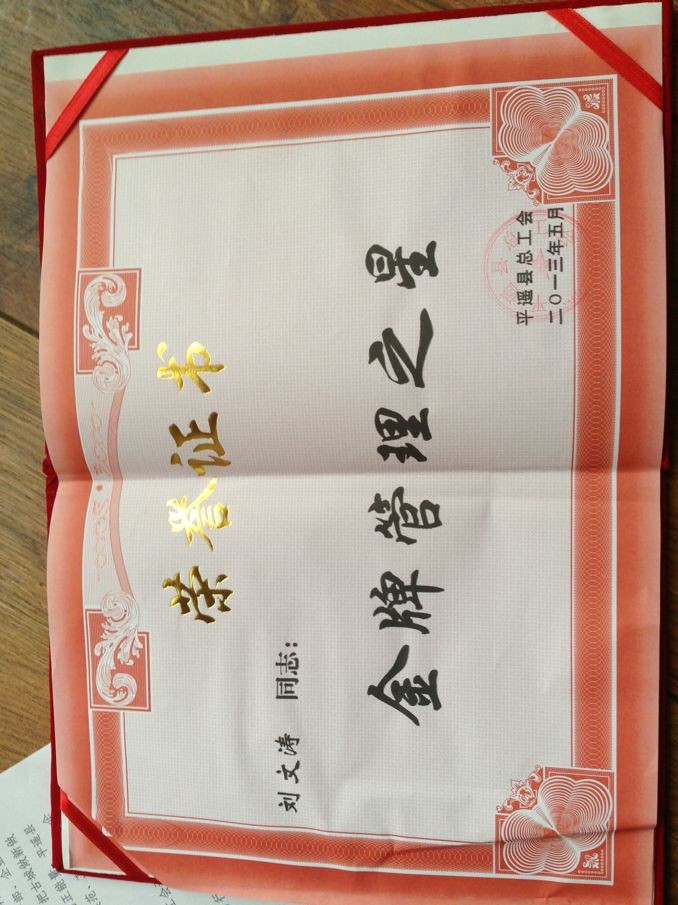 荣誉证书
刘文涛 同志：
金牌管理之星
平遥县总工会
二〇一三年五月